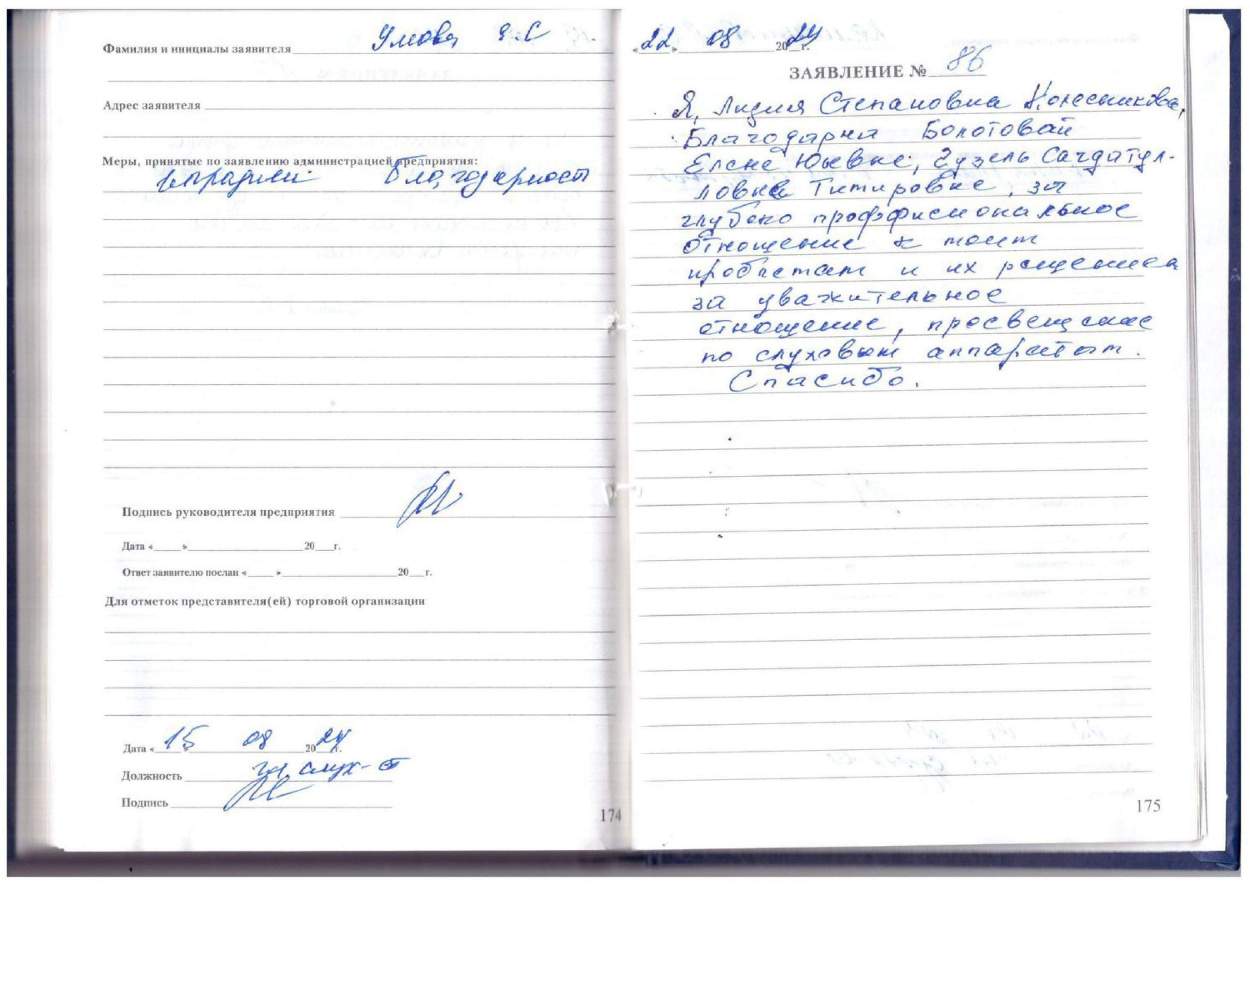 Фамилия и инициалы заявителя Умова
Адрес заявителя
Меры, принятые по заявлению администрацией предприятия:
Благодарность
Подпись руководителя предприятия
Дата «____»____________20___г.
Ответ заявителю послан «____»____________20___г.
Для отметок представителя(ей) торговой организации
Дата « 15 08 2024г.
Должность гл. слух-т
Подпись
174
«22» 08 2024г.
ЗАЯВЛЕНИЕ № 86
Я, Лидия Степановна Колесникова,
Благодарна Болотовой
Елене Юьевне, Гузель Сагдатул-
ловне Тимировне, за
глубоко проффисиональное
отношение к моим
проблемам и их решением
за уважительное
отношение, просвещение
по слуховым аппаратам.
Спасибо.
175